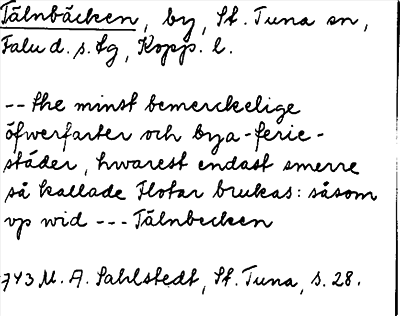 Tälnbäcken, by, St. Tuna sn,
Falu d. s. lg, Kopp. l.
-- the minst bemerckelige
öfwerfarter och bya-ferie-
städer, hwarest endast smerre
så kallade Flotar brukas: såsom
vp wid --- Tälnbecken
743 M. A. Sahlstedt, St. Tuna, s. 28.